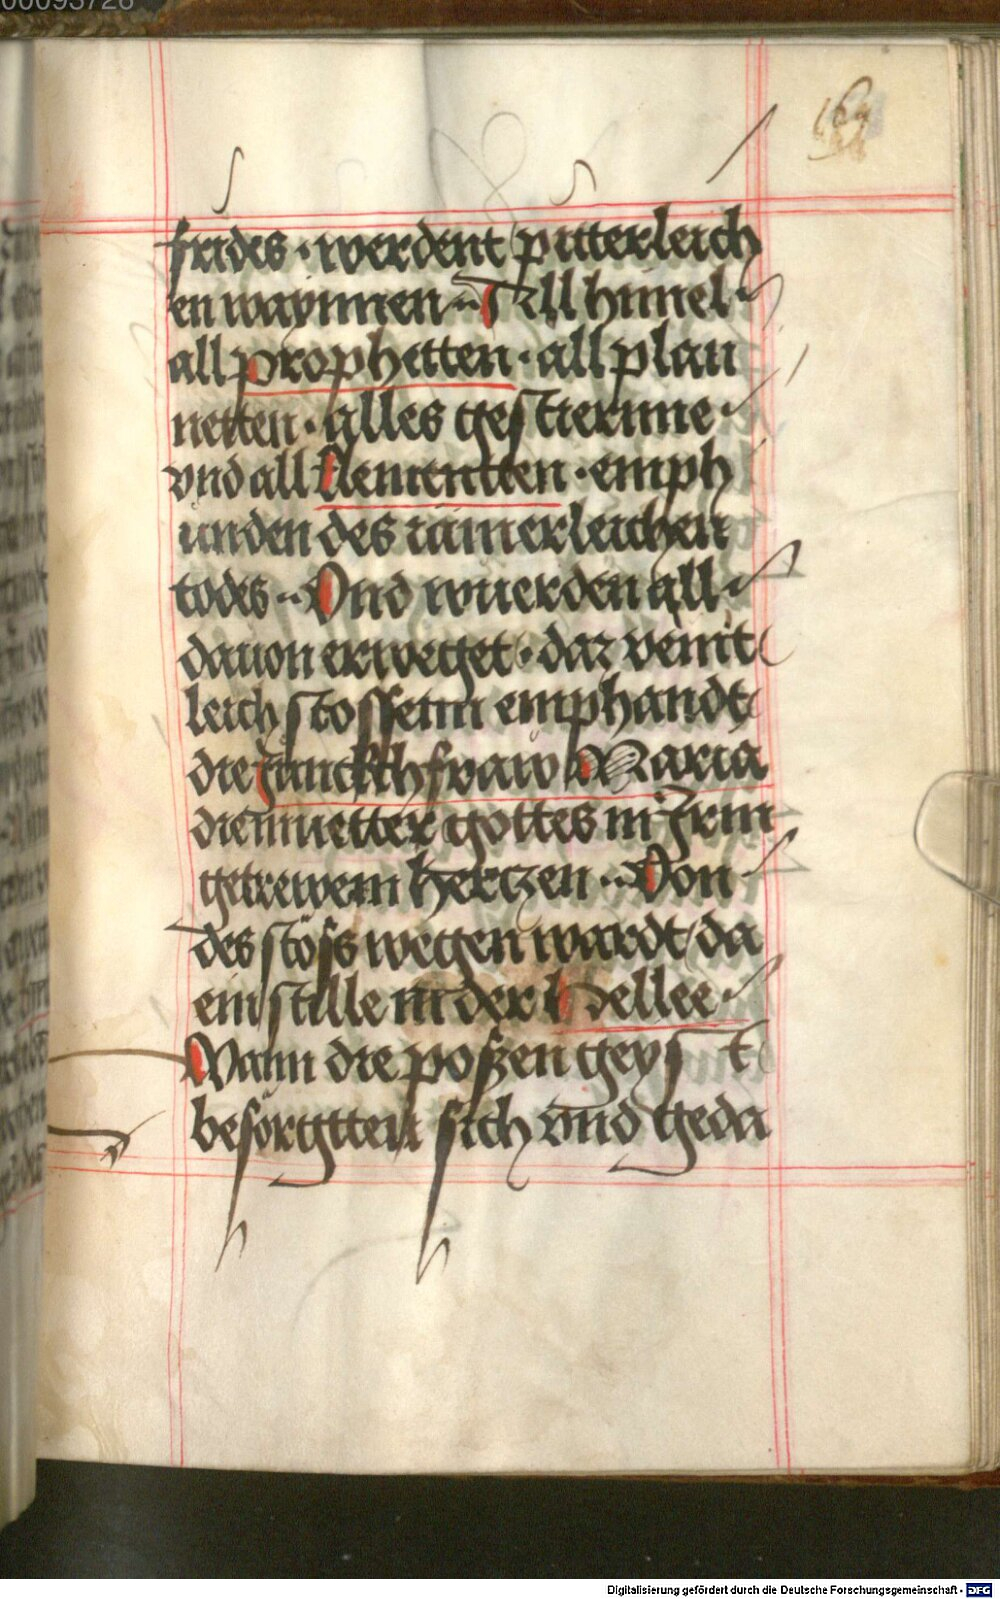 00093728
frides · werdent pitterleich
en waynnen ·· All himel ·
all prophetten · all plan
netten · alles gestiernne ·
vnd all Elementten · emph
unden des iamerleichen
todes ·· Vnd wuerden all
dauon erweget · daz veint
leich stossenn emphandt
die junckchfraw Maria
die muetter gottes in Jrm
getrewem herczen ·· Von
des stöss wegen wardt da
ein stille in der hellee ·
Wann die poßen geyst
besorgtten sich vnd geda
Digitalisierung gefördert durch die Deutsche Forschungsgemeinschaft - DFG